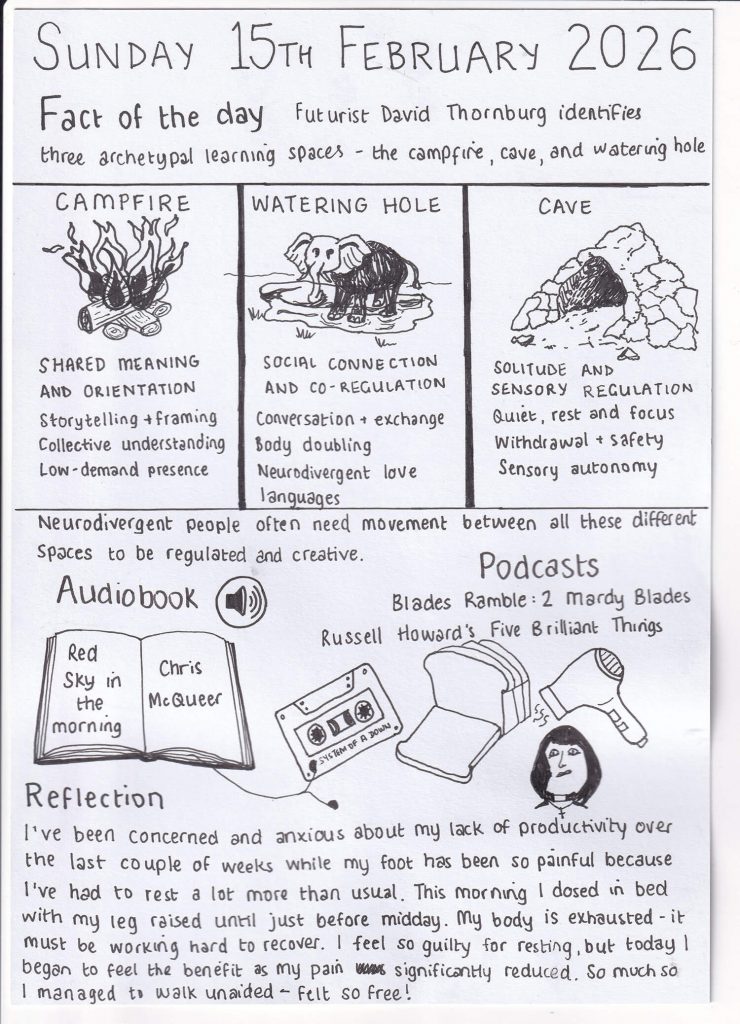 SUNDAY 15TH FEBRUARY 2026
Fact of the day Futurist David Thornburg identifies
three archetypal learning spaces - the campfire, cave, and watering hole
CAMPFIRE
SHARED MEANING
AND ORIENTATION
Storytelling + framing
Collective understanding
Low-demand presence
WATERING HOLE
SOCIAL CONNECTION
AND CO-REGULATION
Conversation + exchange
Body doubling
Neurodivergent love
languages
CAVE
SOLITUDE AND
SENSORY REGULATION
Quiet, rest and focus
Withdrawal + safety
Sensory autonomy
Neurodivergent people often need movement between all these different
spaces to be regulated and creative.
Audiobook
Red
Sky in
the
morning
Chris
McQueer
Podcasts
Blades Ramble: 2 Mardy Blades
Russell Howard's Five Brilliant Things
SYSTEM OF A DOWN
Reflection
I've been concerned and anxious about my lack of productivity over
the last couple of weeks while my foot has been so painful because
I've had to rest a lot more than usual. This morning I dosed in bed
with my leg raised until just before midday. My body is exhausted - it
must be working hard to recover. I feel so guilty for resting, but today I
began to feel the benefit as my pain significantly reduced. So much so
I managed to walk unaided - felt so free!